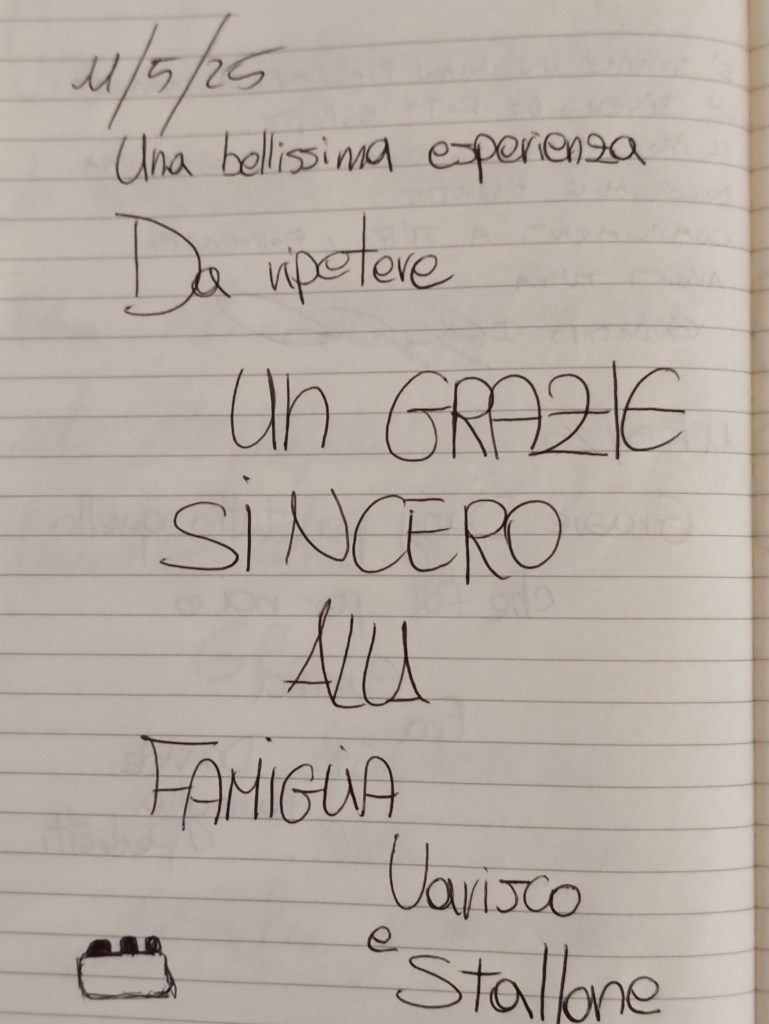 11/5/25
Una bellissima esperienza
Da ripetere
Un GRAZIE
SiNCERO
ALLA
FAMiGLIA
Varisco
e
Stallone